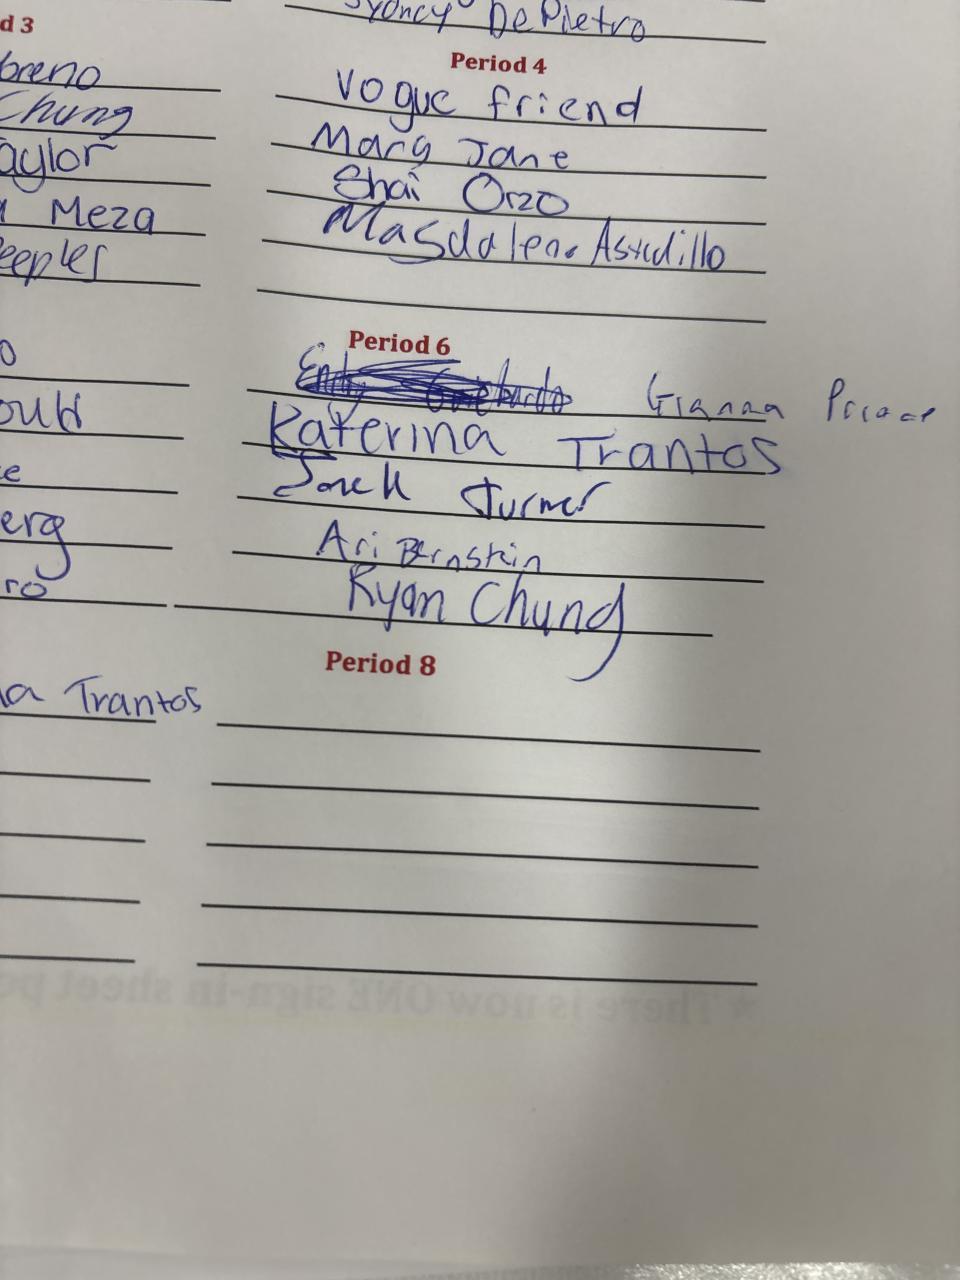 Sydney DePietro
d 3
breno
Chung
aylor
Meza
eepler
o
ould
e
erg
ro
a Trantos
Period 4
Vogue friend
Mary Jane
Shai Orzo
Magdalena Astudillo
Period 6
Gianna
Katerina Trantos
Jack Turner
Ari Bernstein
Ryan Chung
Period 8
* There is now ONE sign-in sheet pe